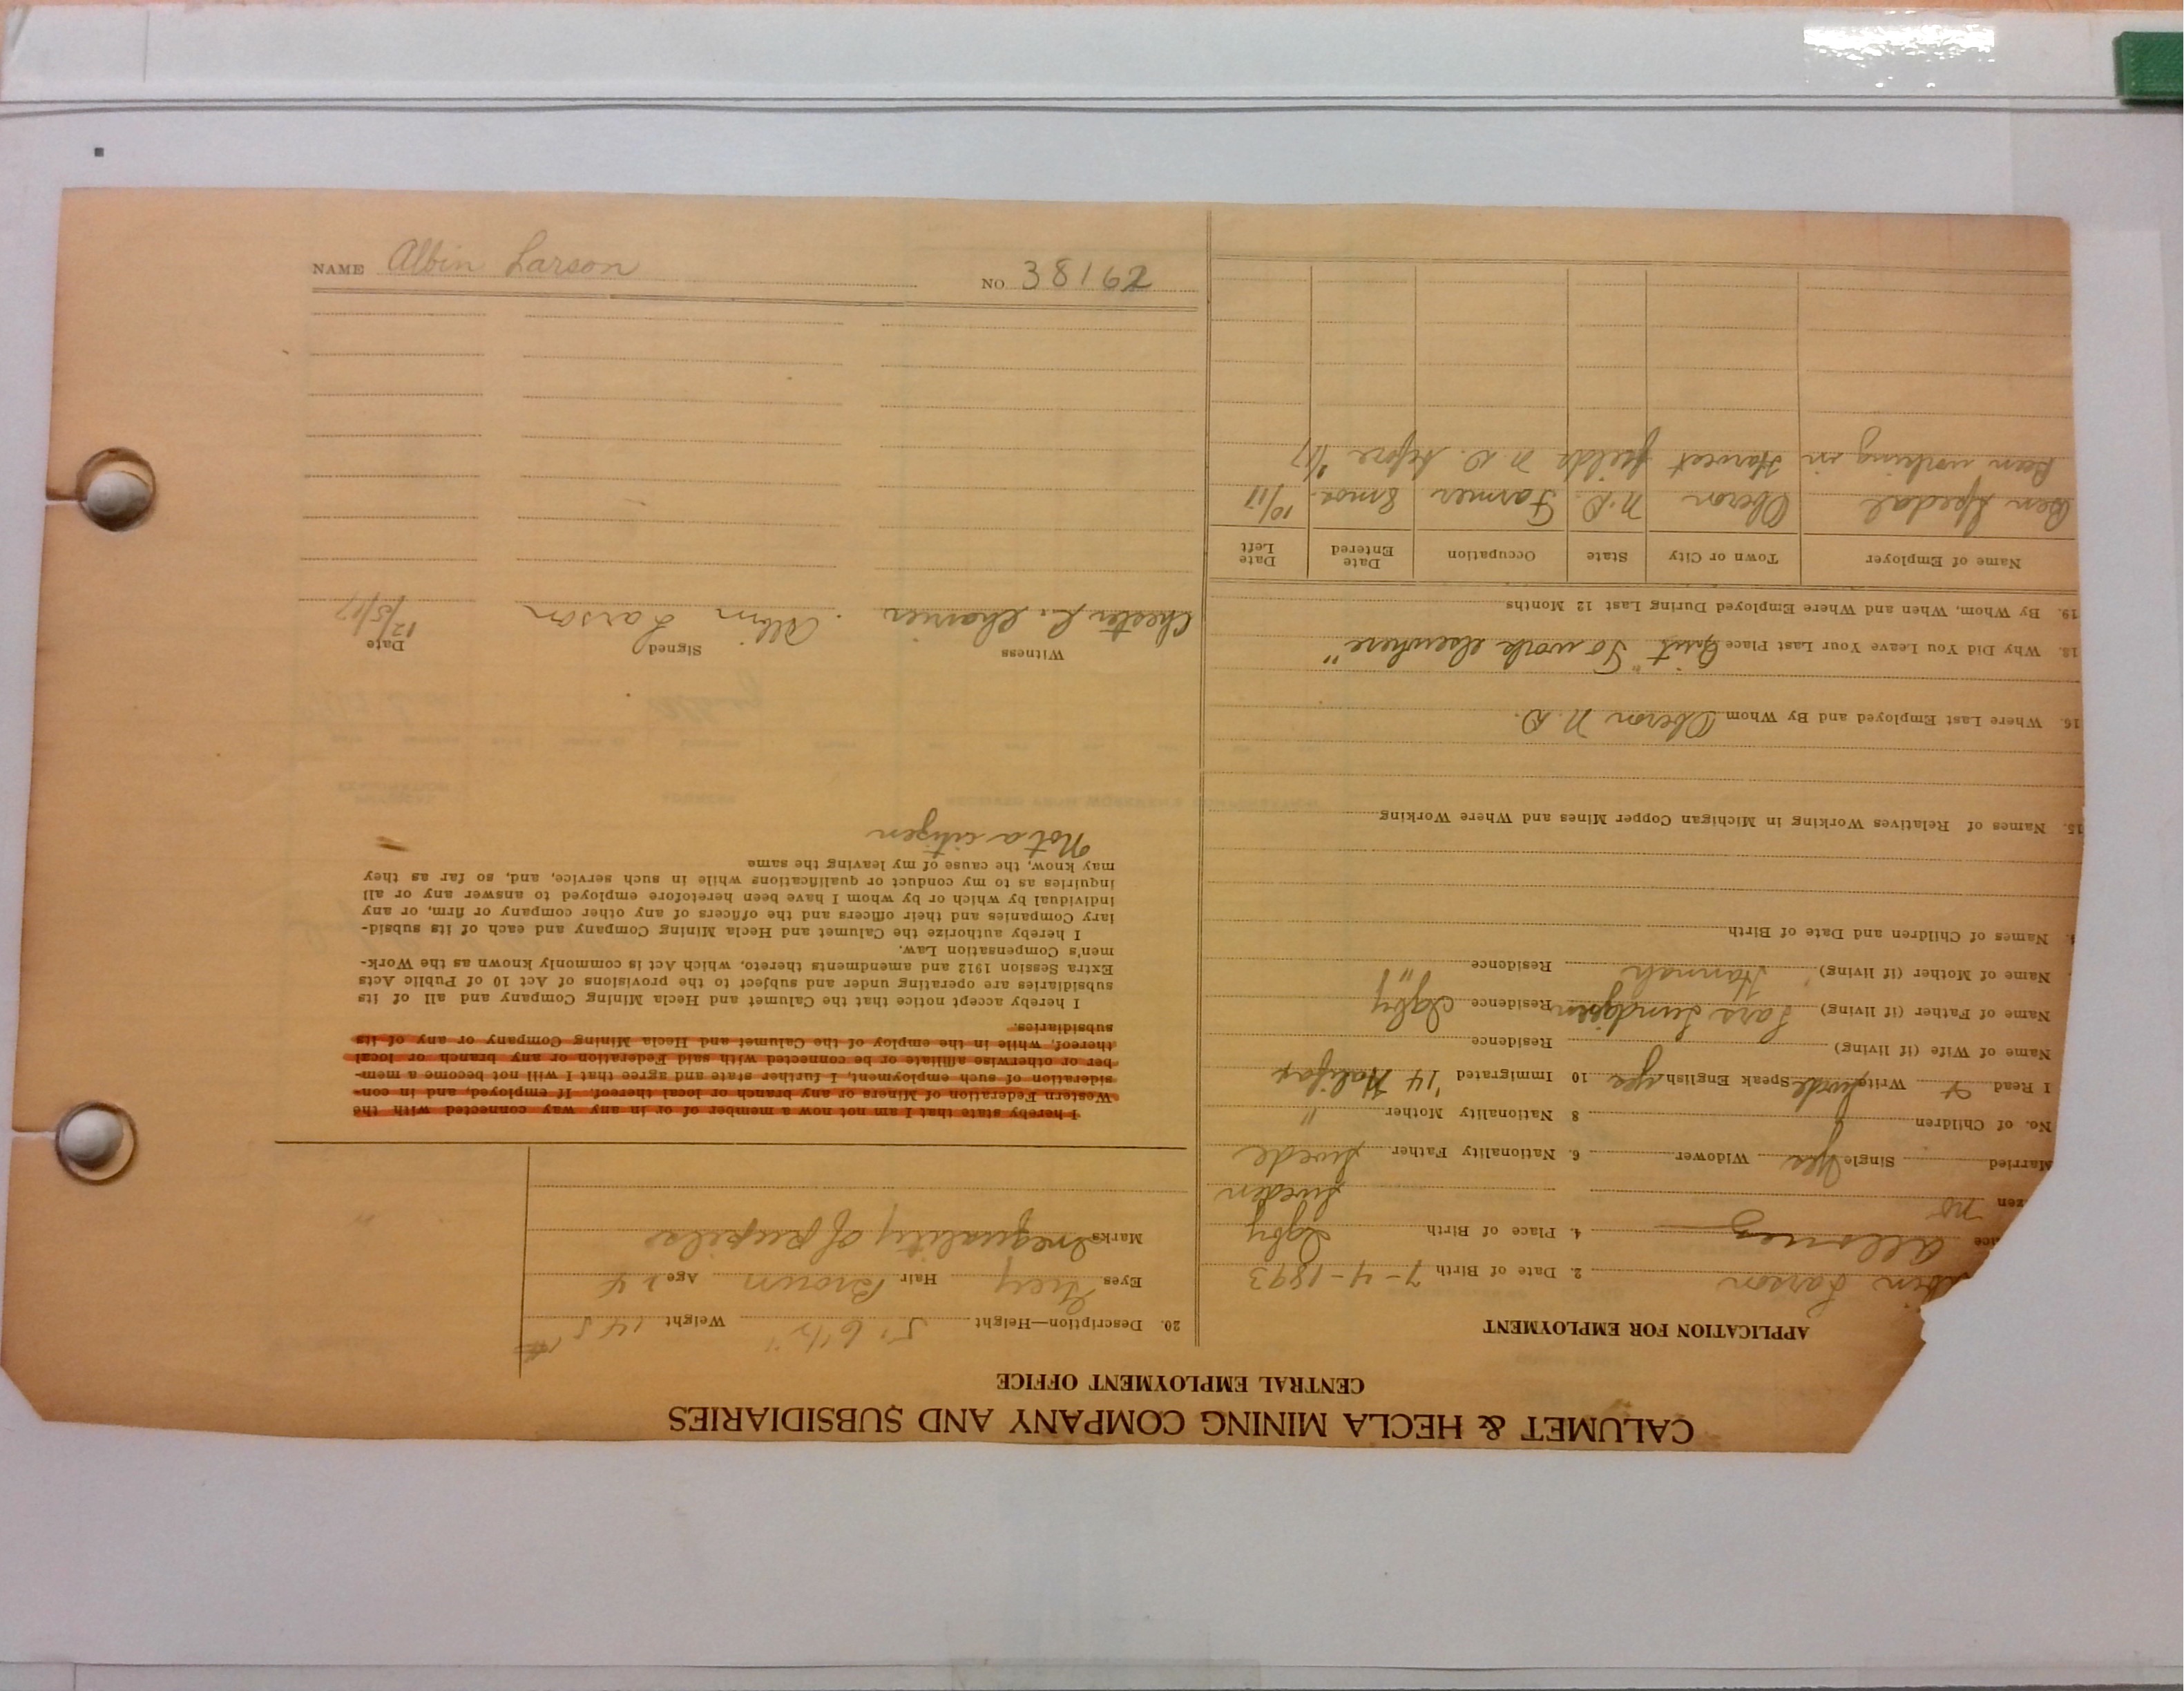 CALUMET & HECLA MINING COMPANY AND SUBSIDIARIES
CENTRAL EMPLOYMENT OFFICE
APPLICATION FOR EMPLOYMENT
Larson 2. Date of Birth 7-4-1893
4. Place of Birth
no Sweden
Married Single Yes Widower 6. Nationality Father Swede
No. of Children 8 Nationality Mother "
I Read Write Swede Speak English yes 10 Immigrated '14 Halifax
Name of Wife (if living) Residence
Name of Father (if living) Lars Residence
Name of Mother (if living) Hannah Residence "
Names of Children and Date of Birth
15. Names of Relatives Working in Michigan Copper Mines and Where Working
16. Where Last Employed and By Whom Oberon N.D.
18. Why Did You Leave Your Last Place Quit "To work elsewhere"
19. By Whom, When and Where Employed During Last 12 Months
Name of Employer Town or City State Occupation Date Entered Date Left
Ben Oberon N.D. Farmer 8 mos.
Been working in Harvest fields N.D. before
20. Description—Height 5' 6 1/2" Weight 145#
Eyes Grey Hair Brown Age 24
Marks Inequality of pupils
I hereby state that I am not now a member of or in any way connected with the
Western Federation of Miners or any branch or local thereof. If employed, and in con-
sideration of such employment, I further state and agree that I will not become a mem-
ber or otherwise affiliate or be connected with said Federation or any branch or local
thereof, while in the employ of the Calumet and Hecla Mining Company or any of its
subsidiaries.
I hereby accept notice that the Calumet and Hecla Mining Company and all of its
subsidiaries are operating under and subject to the provisions of Act 10 of Public Acts
Extra Session 1912 and amendments thereto, which Act is commonly known as the Work-
men's Compensation Law.
I hereby authorize the Calumet and Hecla Mining Company and each of its subsid-
iary Companies and their officers and the officers of any other company or firm, or any
individual by which or by whom I have been heretofore employed to answer any or all
inquiries as to my conduct or qualifications while in such service, and, so far as they
may know, the cause of my leaving the same
Not a citizen
Witness Signed Date
Chester Albin Larson 12/5/17
NAME Albin Larson NO 38162